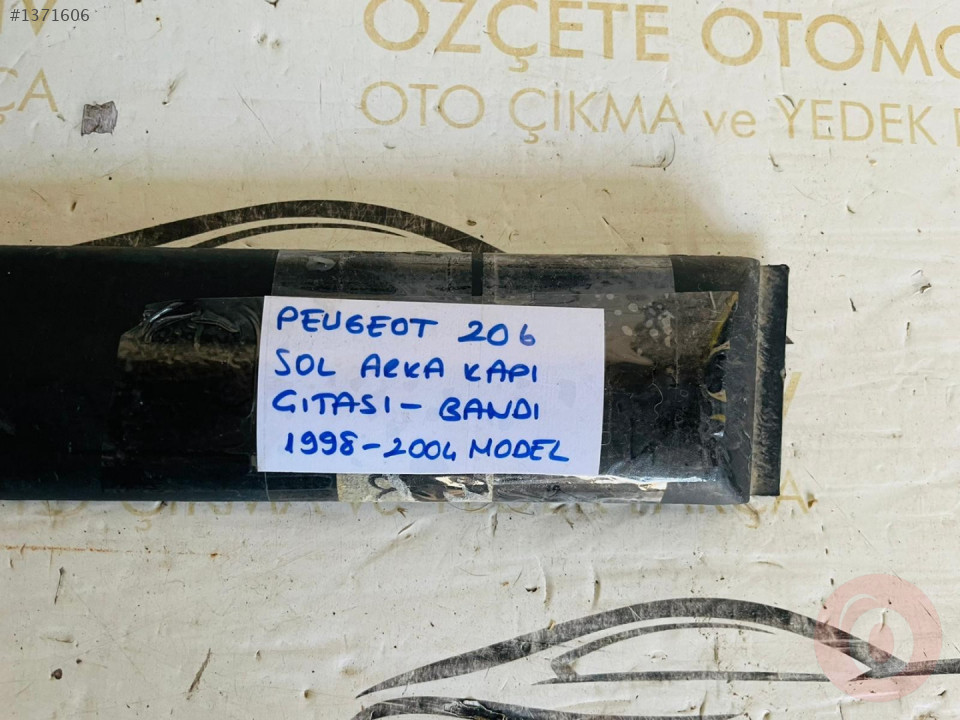 #1371606
ÖZÇETE OTOMO
ÇA
OTO ÇIKMA ve YEDEK
PEUGEOT 206
SOL ARKA KAPI
ÇITASI - BANDI
1998-2004 MODEL
ÇIKMA ve YEDEK PARÇA